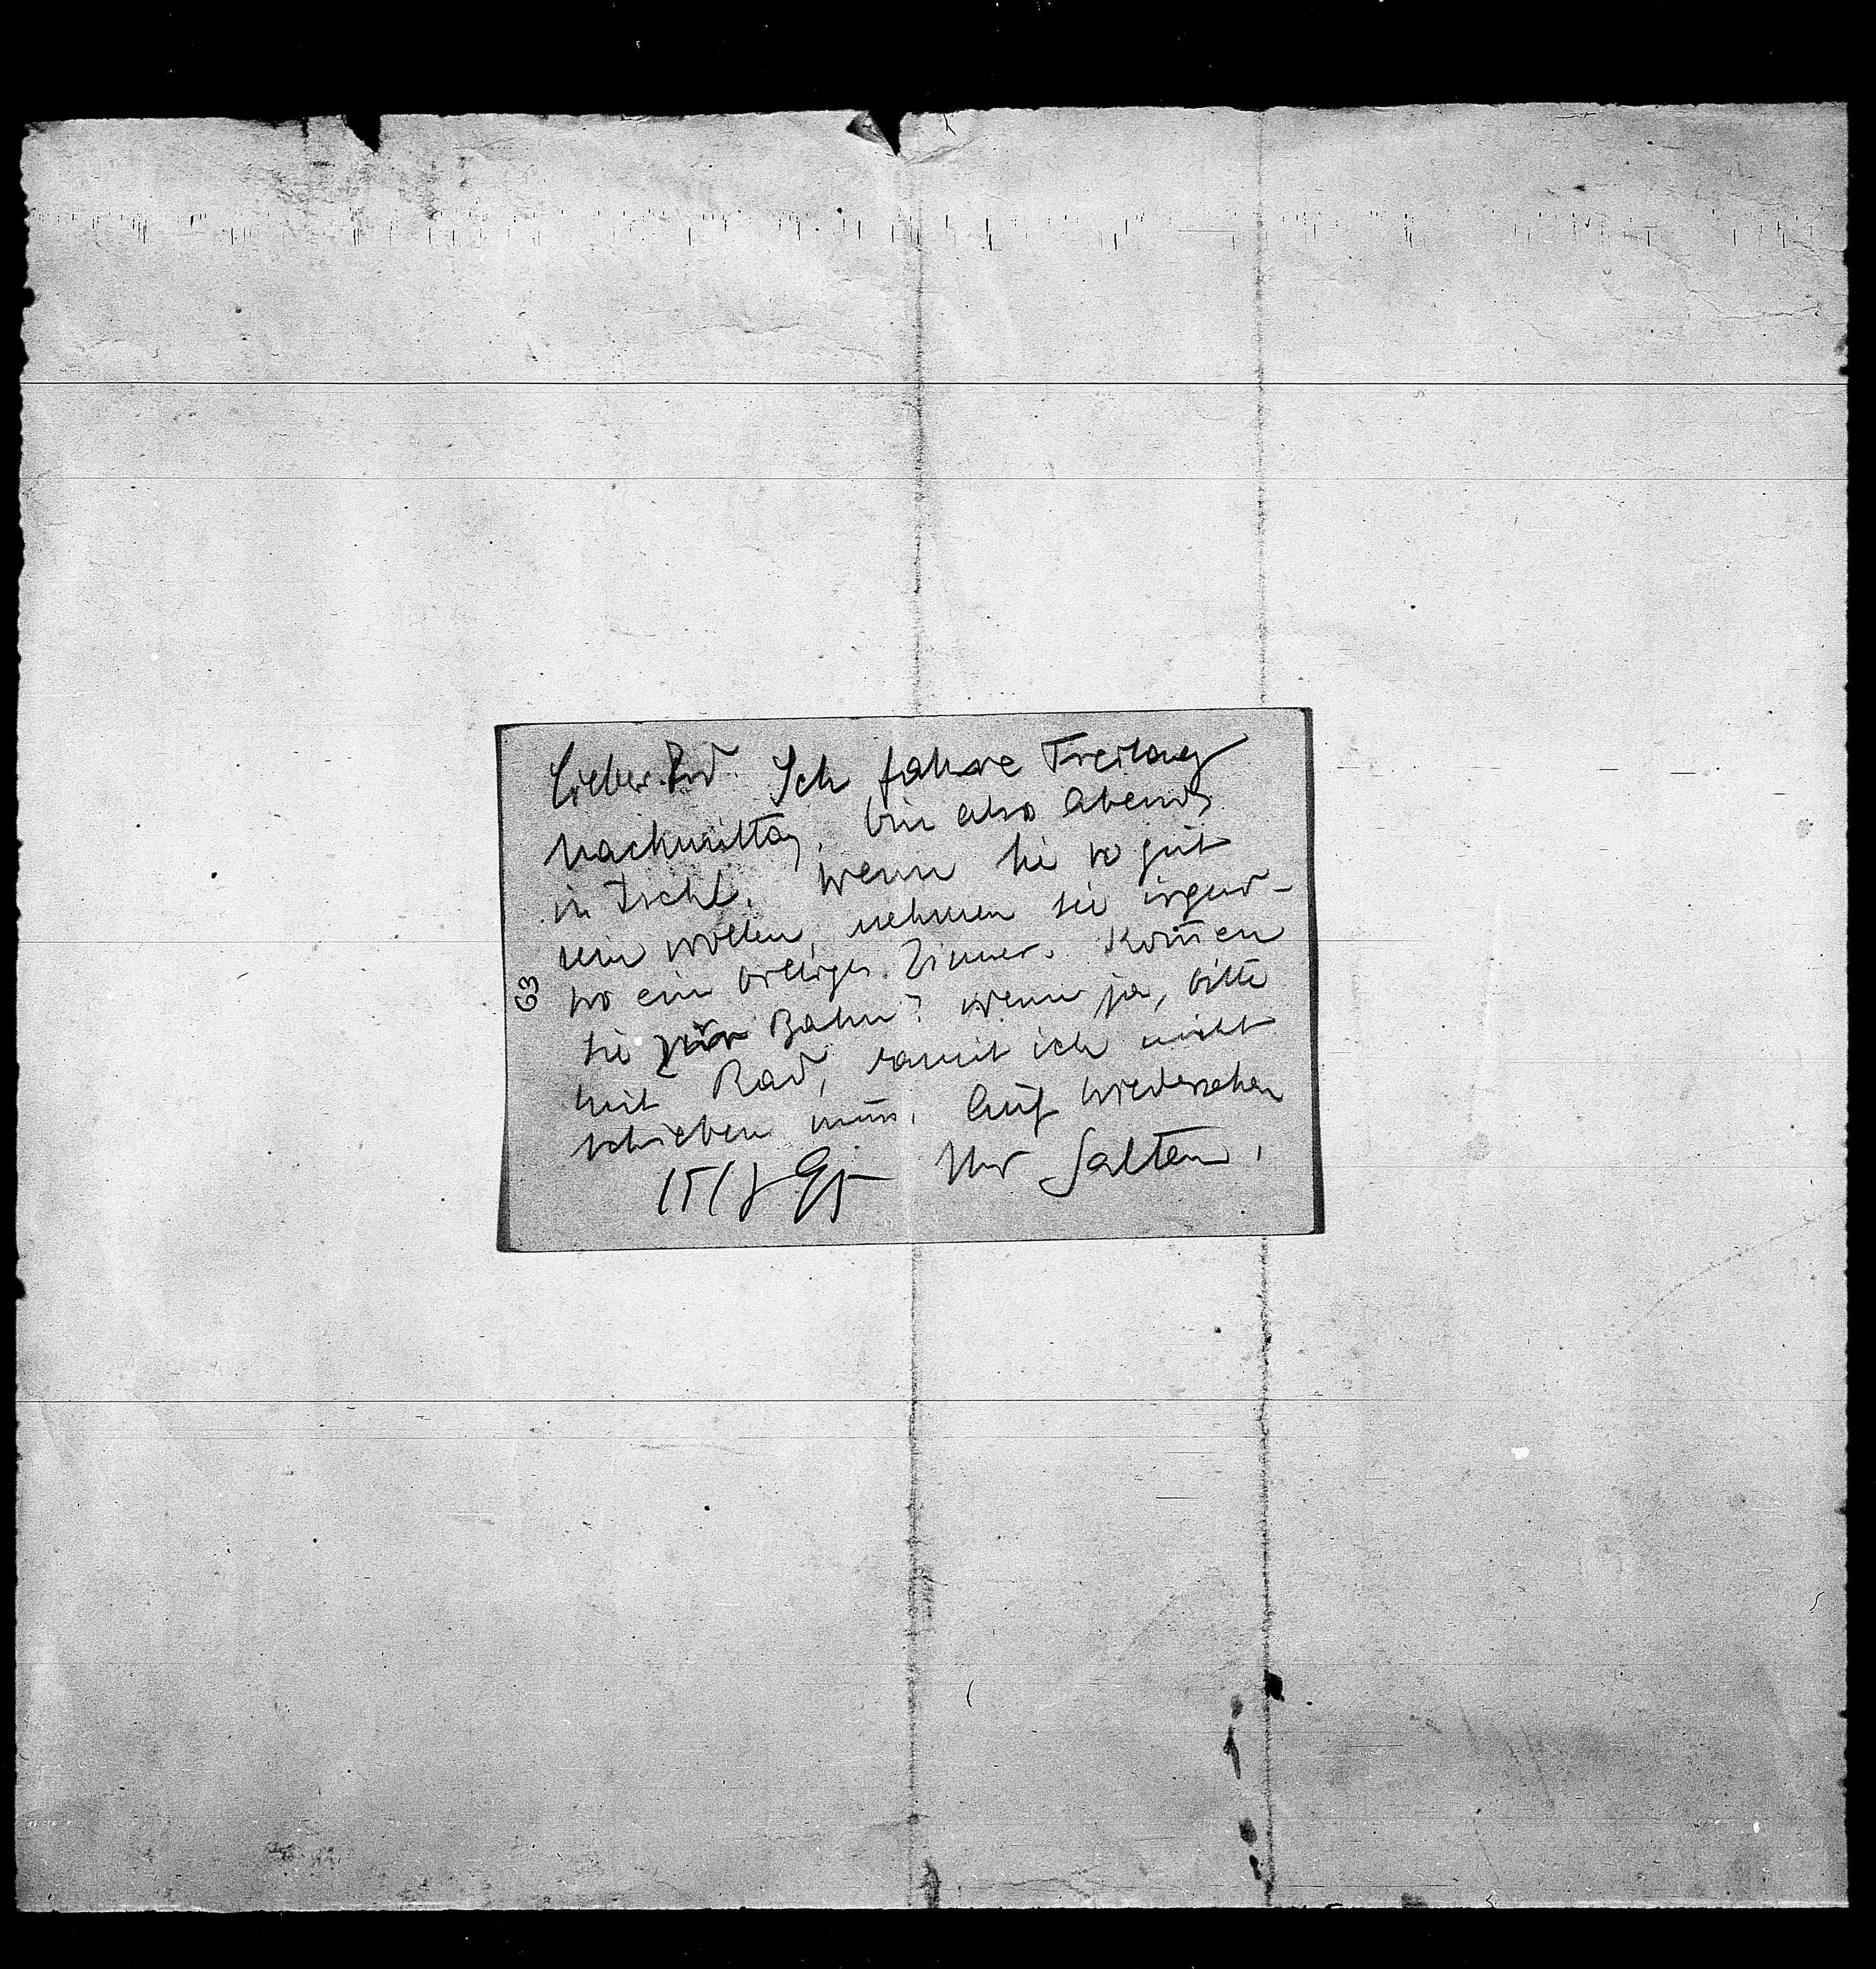 Lieber Frd. Ich fahre Freitag
Nachmittag, bin also Abends
in Ischl. Wenn Sie so gut
sein wollen, nehmen Sie irgend-
wo ein billiges Zimmer. Kom̅en
Sie zur Bahn? Wenn ja, bitte
mit Rad, damit ich nicht
schieben muss. Auf Wiedersehen
15/8 95 Ihr Salten.
63